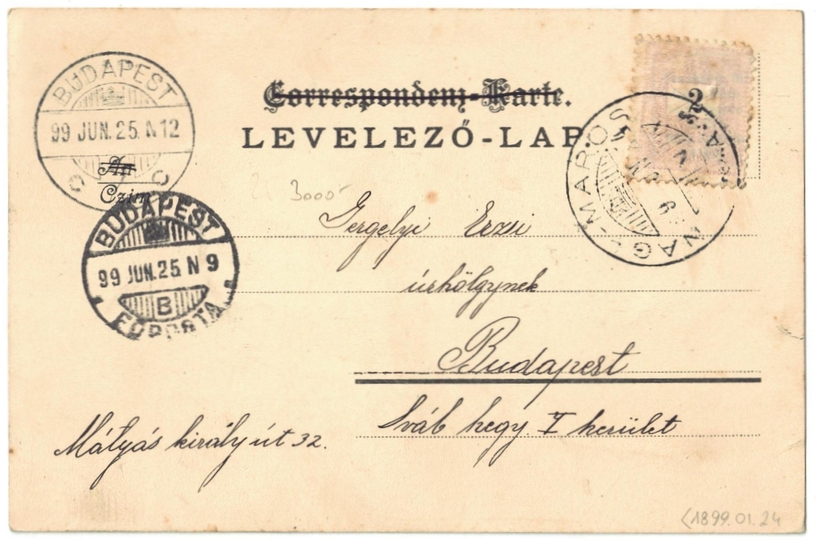 BUDAPEST
99 JUN. 25. N 12
Correspondenz-Karte.
LEVELEZŐ-LAP
2
NAGY-MAROS
An
Czim
3000
BUDAPEST
99 JUN. 25. N 9
B
FŐPOSTA
Gergelyi Erzsi
úrhölgynek
Budapest
Sváb hegy. I kerület
Mátyás király út 32.
(1899.01.24